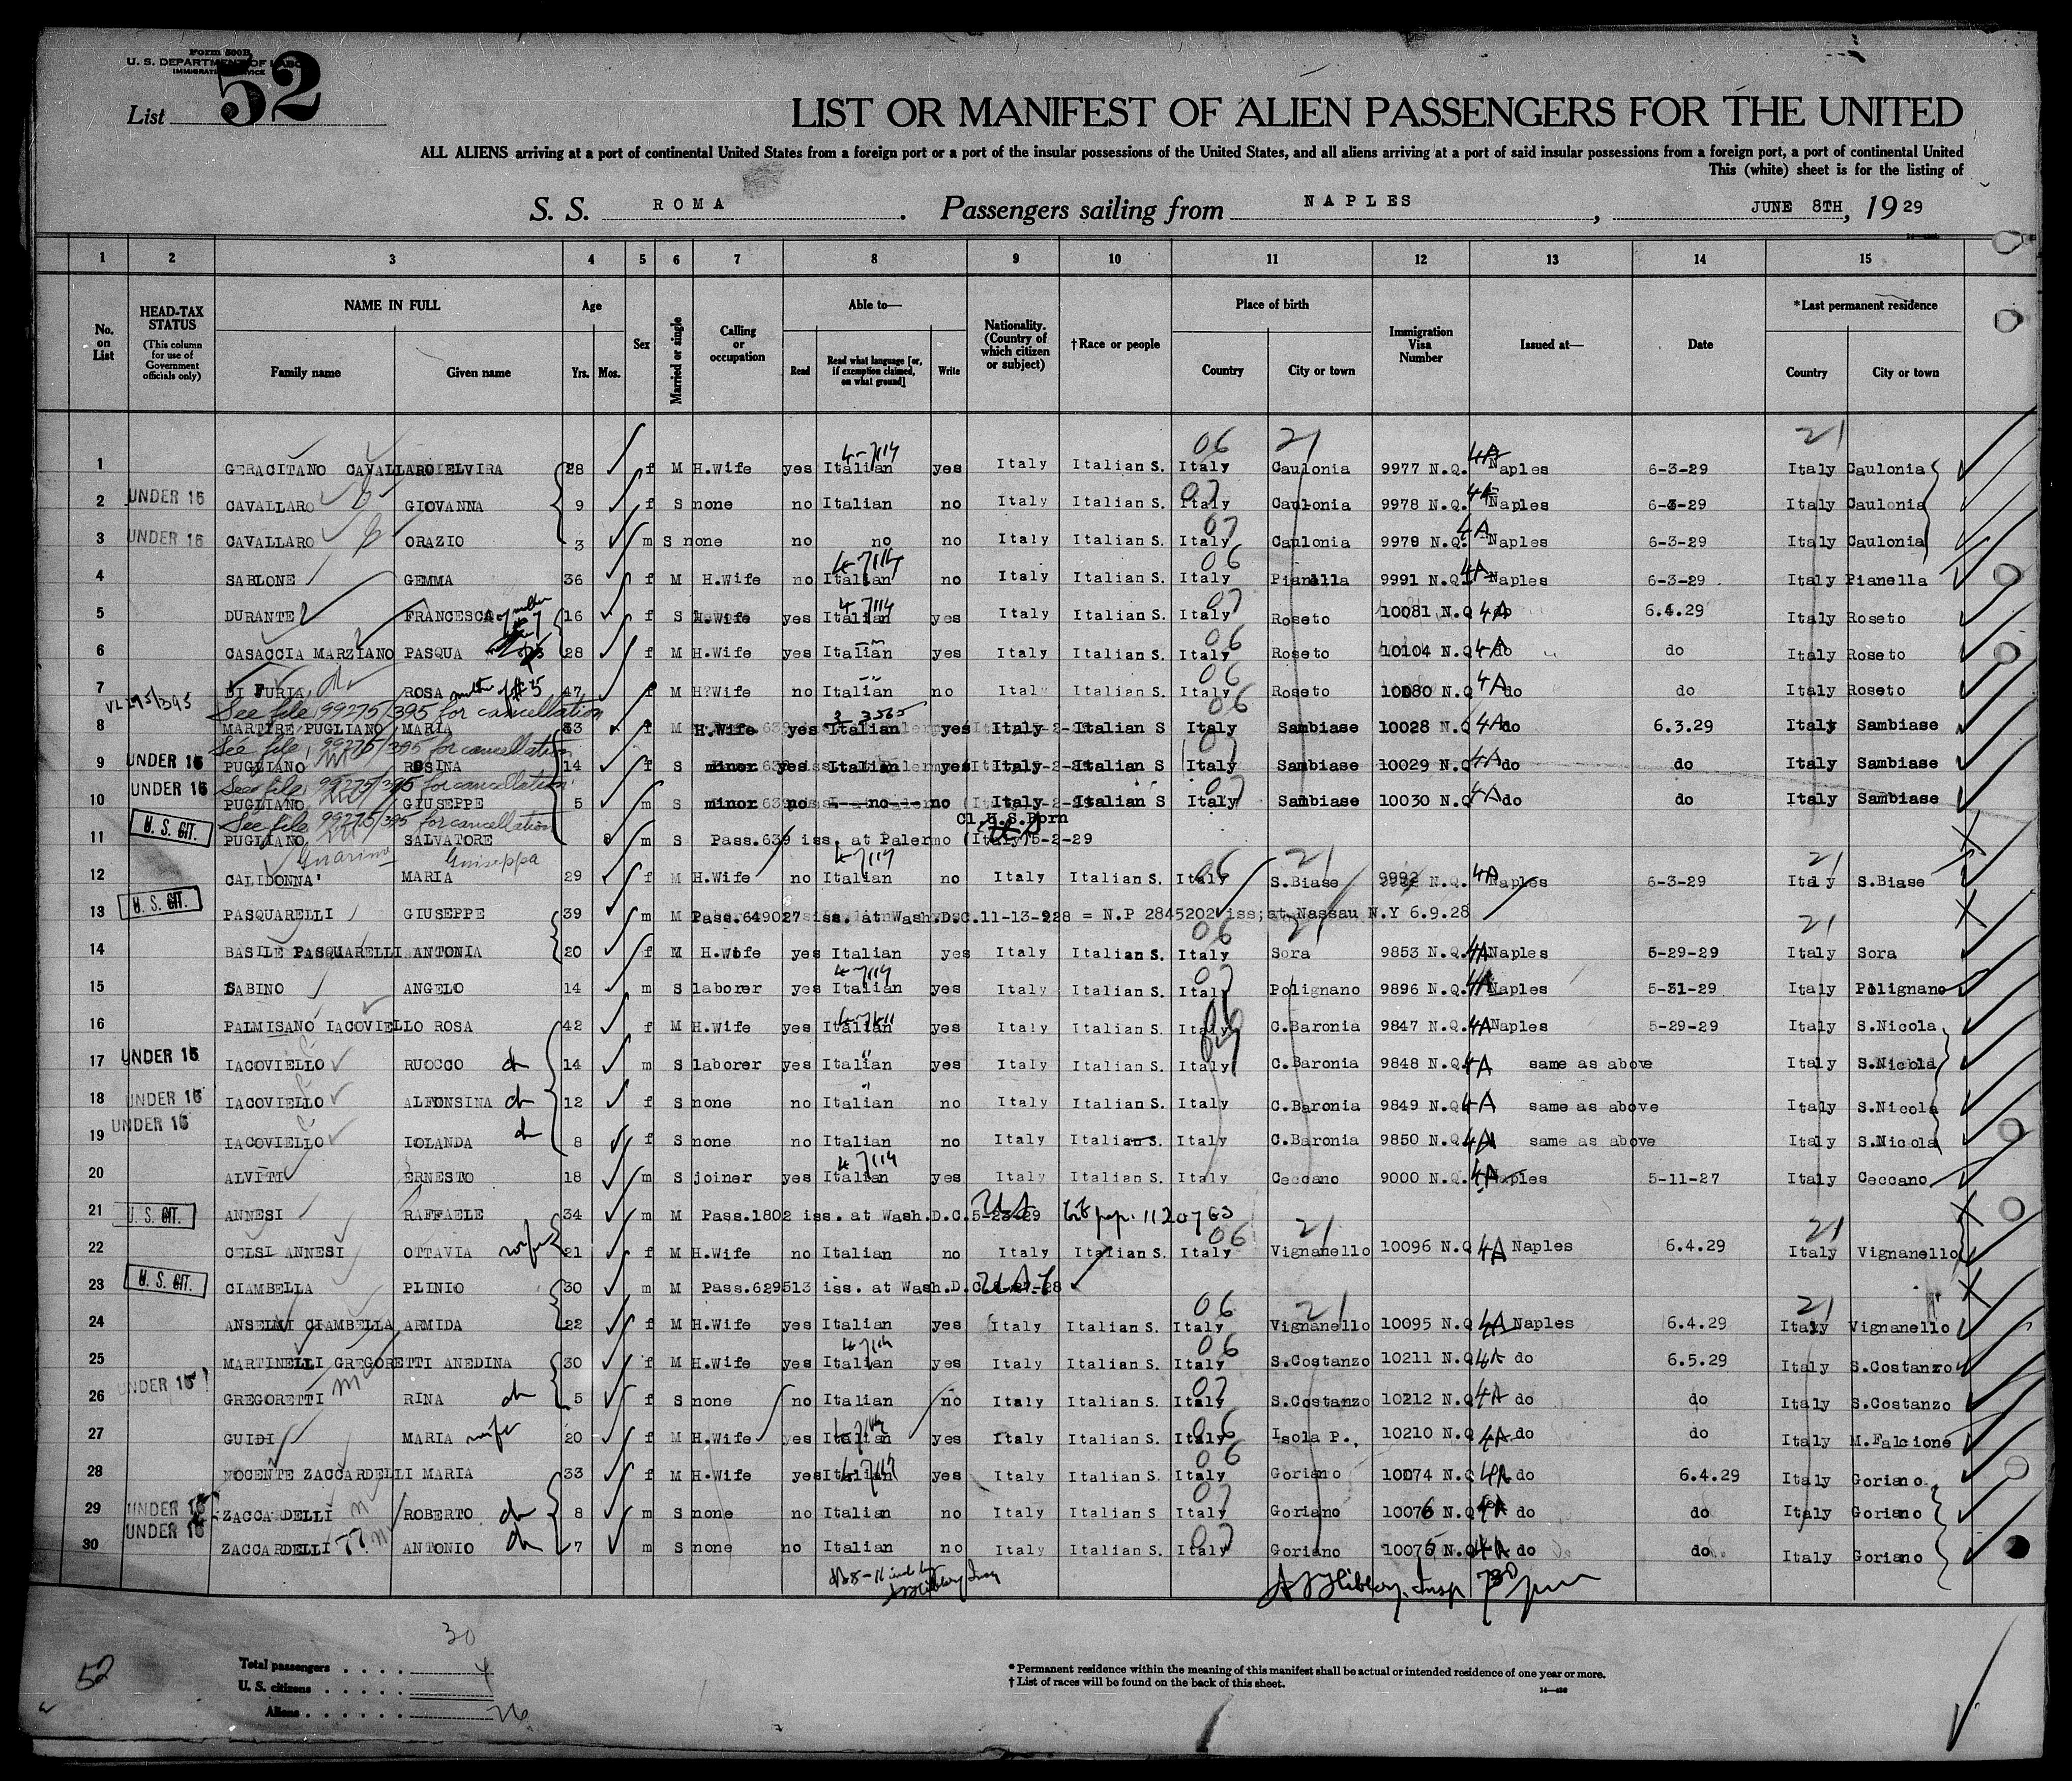 Form 500B
U. S. DEPARTMENT OF LABOR
IMMIGRATION SERVICE
List 52
LIST OR MANIFEST OF ALIEN PASSENGERS FOR THE UNITED
ALL ALIENS arriving at a port of continental United States from a foreign port or a port of the insular possessions of the United States, and all aliens arriving at a port of said insular possessions from a foreign port, a port of continental United
This (white) sheet is for the listing of
S. S. ROMA. Passengers sailing from NAPLES, JUNE 8TH, 1929
1 2 3 4 5 6 7 8 9 10 11 12 13 14 15
No. on List
HEAD-TAX STATUS (This column for use of Government officials only)
NAME IN FULL
Family name Given name
Age
Yrs. Mos.
Sex
Married or single
Calling or occupation
Able to—
Read Read what language [or, if exemption claimed, on what ground] Write
Nationality. (Country of which citizen or subject)
†Race or people
Place of birth
Country City or town
Immigration Visa Number
Issued at—
Date
*Last permanent residence
Country City or town
06 21 21
1 GERACITANO CAVALLARO ELVIRA 28 f M H.Wife yes Italian yes Italy Italian S. Italy Caulonia 9977 N.Q. 4A Naples 6-3-29 Italy Caulonia
2 UNDER 16 CAVALLARO GIOVANNA 9 f S none no Italian no Italy Italian S. 07 Italy Caulonia 9978 N.Q. 4A Naples 6-3-29 Italy Caulonia
3 UNDER 16 CAVALLARO ORAZIO 3 m S none no no no Italy Italian S. 07 Italy Caulonia 9979 N.Q. 4A Naples 6-3-29 Italy Caulonia
4 SABLONE GEMMA 36 f M H.Wife no Italian no Italy Italian S. 06 Italy Pianella 9991 N.Q. 4A Naples 6-3-29 Italy Pianella
5 DURANTE FRANCESCA 16 f S H.Wife yes Italian yes Italy Italian S. 07 Italy Roseto 10081 N.Q 4A do 6.4.29 Italy Roseto
6 CASACCIA MARZIANO PASQUA 28 f M H.Wife yes Italian yes Italy Italian S. 06 Italy Roseto 10104 N.Q 4A do do Italy Roseto
7 DI FURIA ROSA mother of #5 47 f M H?Wife no Italian no Italy Italian S. 06 Italy Roseto 10080 N.Q 4A do do Italy Roseto
See file 99275/395 for cancellation
8 MARTIRE PUGLIANO MARIA 33 f M H.Wife yes Italian yes Italy Italian S 06 Italy Sambiase 10028 N.Q 4A do 6.3.29 Italy Sambiase
See file 99275/395 for cancellation
9 UNDER 16 PUGLIANO ROSINA 14 f S minor yes Italian yes Italy Italian S 07 Italy Sambiase 10029 N.Q 4A do do Italy Sambiase
See file 99275/395 for cancellation
10 UNDER 16 PUGLIANO GIUSEPPE 5 m S minor no no no Italy Italian S 07 Italy Sambiase 10030 N.Q 4A do do Italy Sambiase
See file 99275/395 for cancellation
Cl.U.S.Born
11 U. S. CIT. PUGLIANO SALVATORE 8 m S Pass.639 iss. at Palermo (Italy)5-2-29
Guarino Guiseppa
12 CALIDONNA' MARIA 29 f M H.Wife no Italian no Italy Italian S. 06 Italy 21 S.Biase 9992 N.Q. 4A Naples 6-3-29 21 Italy S.Biase
13 U. S. CIT. PASQUARELLI GIUSEPPE 39 m M Pass.649027 iss. at Wash.D.C.11-13-928 = N.P 2845202 iss;at Nassau N.Y 6.9.28
14 BASILE PASQUARELLI ANTONIA 20 f M H.Wife yes Italian yes Italy Italian S. 06 Italy 21 Sora 9853 N.Q. 4A Naples 5-29-29 21 Italy Sora
15 SABINO ANGELO 14 m S laborer yes Italian yes Italy Italian S. 07 Italy Polignano 9896 N.Q. 4A Naples 5-31-29 Italy Polignano
16 PALMISANO IACOVIELLO ROSA 42 f M H.Wife yes Italian yes Italy Italian S. Italy C.Baronia 9847 N.Q. 4A Naples 5-29-29 Italy S.Nicola
17 UNDER 16 IACOVIELLO RUOCCO ch 14 m S laborer yes Italian yes Italy Italian S. Italy C.Baronia 9848 N.Q. 4A same as above Italy S.Nicola
18 UNDER 16 IACOVIELLO ALFONSINA ch 12 f S none no Italian no Italy Italian S. Italy C.Baronia 9849 N.Q 4A same as above Italy S.Nicola
19 UNDER 16 IACOVIELLO IOLANDA ch 8 f S none no Italian no Italy Italian S. Italy C.Baronia 9850 N.Q. 4A same as above Italy S.Nicola
20 ALVITI ERNESTO 18 m S joiner yes Italian yes Italy Italian S. Italy Ceccano 9000 N.Q. 4A Naples 5-11-27 Italy Ceccano
21 U. S. CIT. ANNESI RAFFAELE 34 m M Pass.1802 iss. at Wash.D.C.5-23-29
22 CELSI ANNESI OTTAVIA wife 21 f M H.Wife no Italian no Italy Italian S. 06 Italy 21 Vignanello 10096 N.Q 4A Naples 6.4.29 21 Italy Vignanello
23 U. S. CIT. CIAMBELLA PLINIO 30 m M Pass.629513 iss. at Wash.D.C.
24 ANSELMI CIAMBELLA ARMIDA 22 f M H.Wife yes Italian yes Italy Italian S. 06 Italy 21 Vignanello 10095 N.Q 4A Naples 6.4.29 21 Italy Vignanello
25 MARTINELLI GREGORETTI ANEDINA 30 f M H.Wife yes Italian yes Italy Italian S. 06 Italy S.Costanzo 10211 N.Q 4A do 6.5.29 Italy S.Costanzo
26 UNDER 16 GREGORETTI RINA ch 5 f S none no Italian no Italy Italian S. 07 Italy S.Costanzo 10212 N.Q 4A do do Italy S.Costanzo
27 GUIDI MARIA wife 20 f M H.Wife yes Italian yes Italy Italian S. 06 Italy Isola P., 10210 N.Q 4A do do Italy M.Falcione
28 NOCENTE ZACCARDELLI MARIA 33 f M H.Wife yes Italian yes Italy Italian S. 06 Italy Goriano 10074 N.Q 4A do 6.4.29 Italy Goriano
29 UNDER 16 ZACCARDELLI ROBERTO ch 8 m S none no Italian no Italy Italian S 07 Italy Goriano 10076 N.Q 4A do do Italy Goriano
30 UNDER 16 ZACCARDELLI ANTONIO ch 7 m S none no Italian no Italy Italian S. 07 Italy Goriano 10075 N.Q 4A do do Italy Goriano
52
Total passengers . . . . 30
U. S. citizens . . . . . 4
Aliens . . . . . . 26
* Permanent residence within the meaning of this manifest shall be actual or intended residence of one year or more.
† List of races will be found on the back of this sheet.